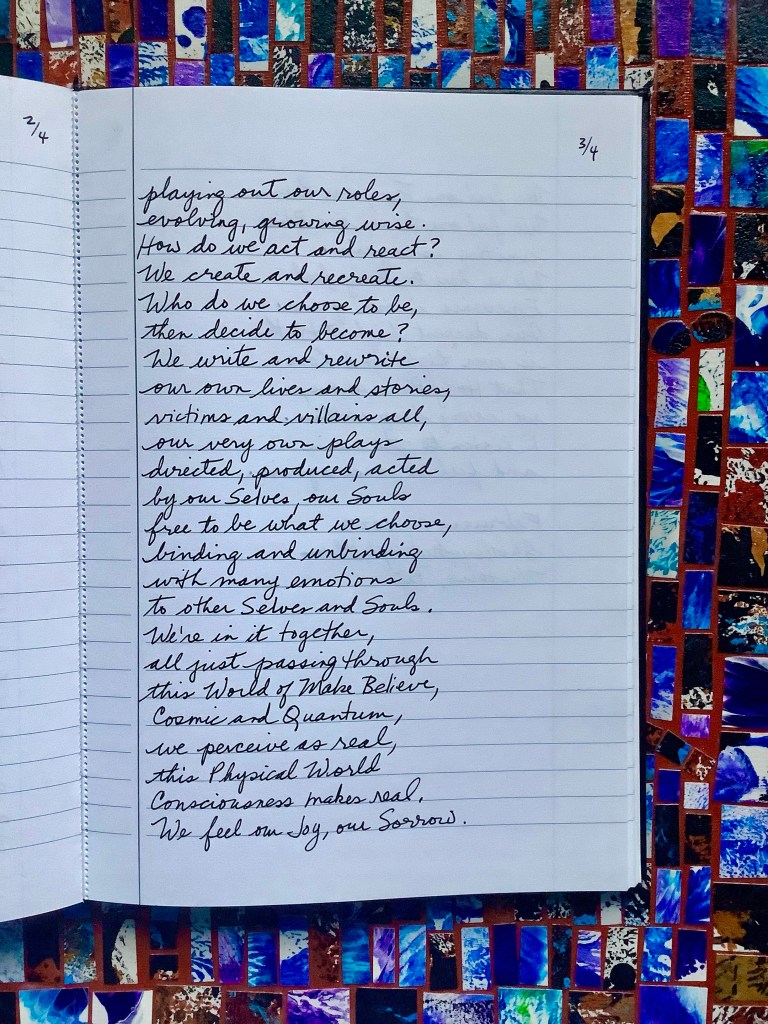 2/4
3/4
playing out our roles,
evolving, growing wise.
How do we act and react?
We create and recreate.
Who do we choose to be,
then decide to become?
We write and rewrite
our own lives and stories,
victims and villains all,
our very own plays
directed, produced, acted
by our Selves, our Souls
free to be what we choose,
binding and unbinding
with many emotions
to other Selves and Souls.
We're in it together,
all just passing through
this World of Make Believe,
Cosmic and Quantum,
we perceive as real,
this Physical World
Consciousness makes real.
We feel our Joy, our Sorrow.